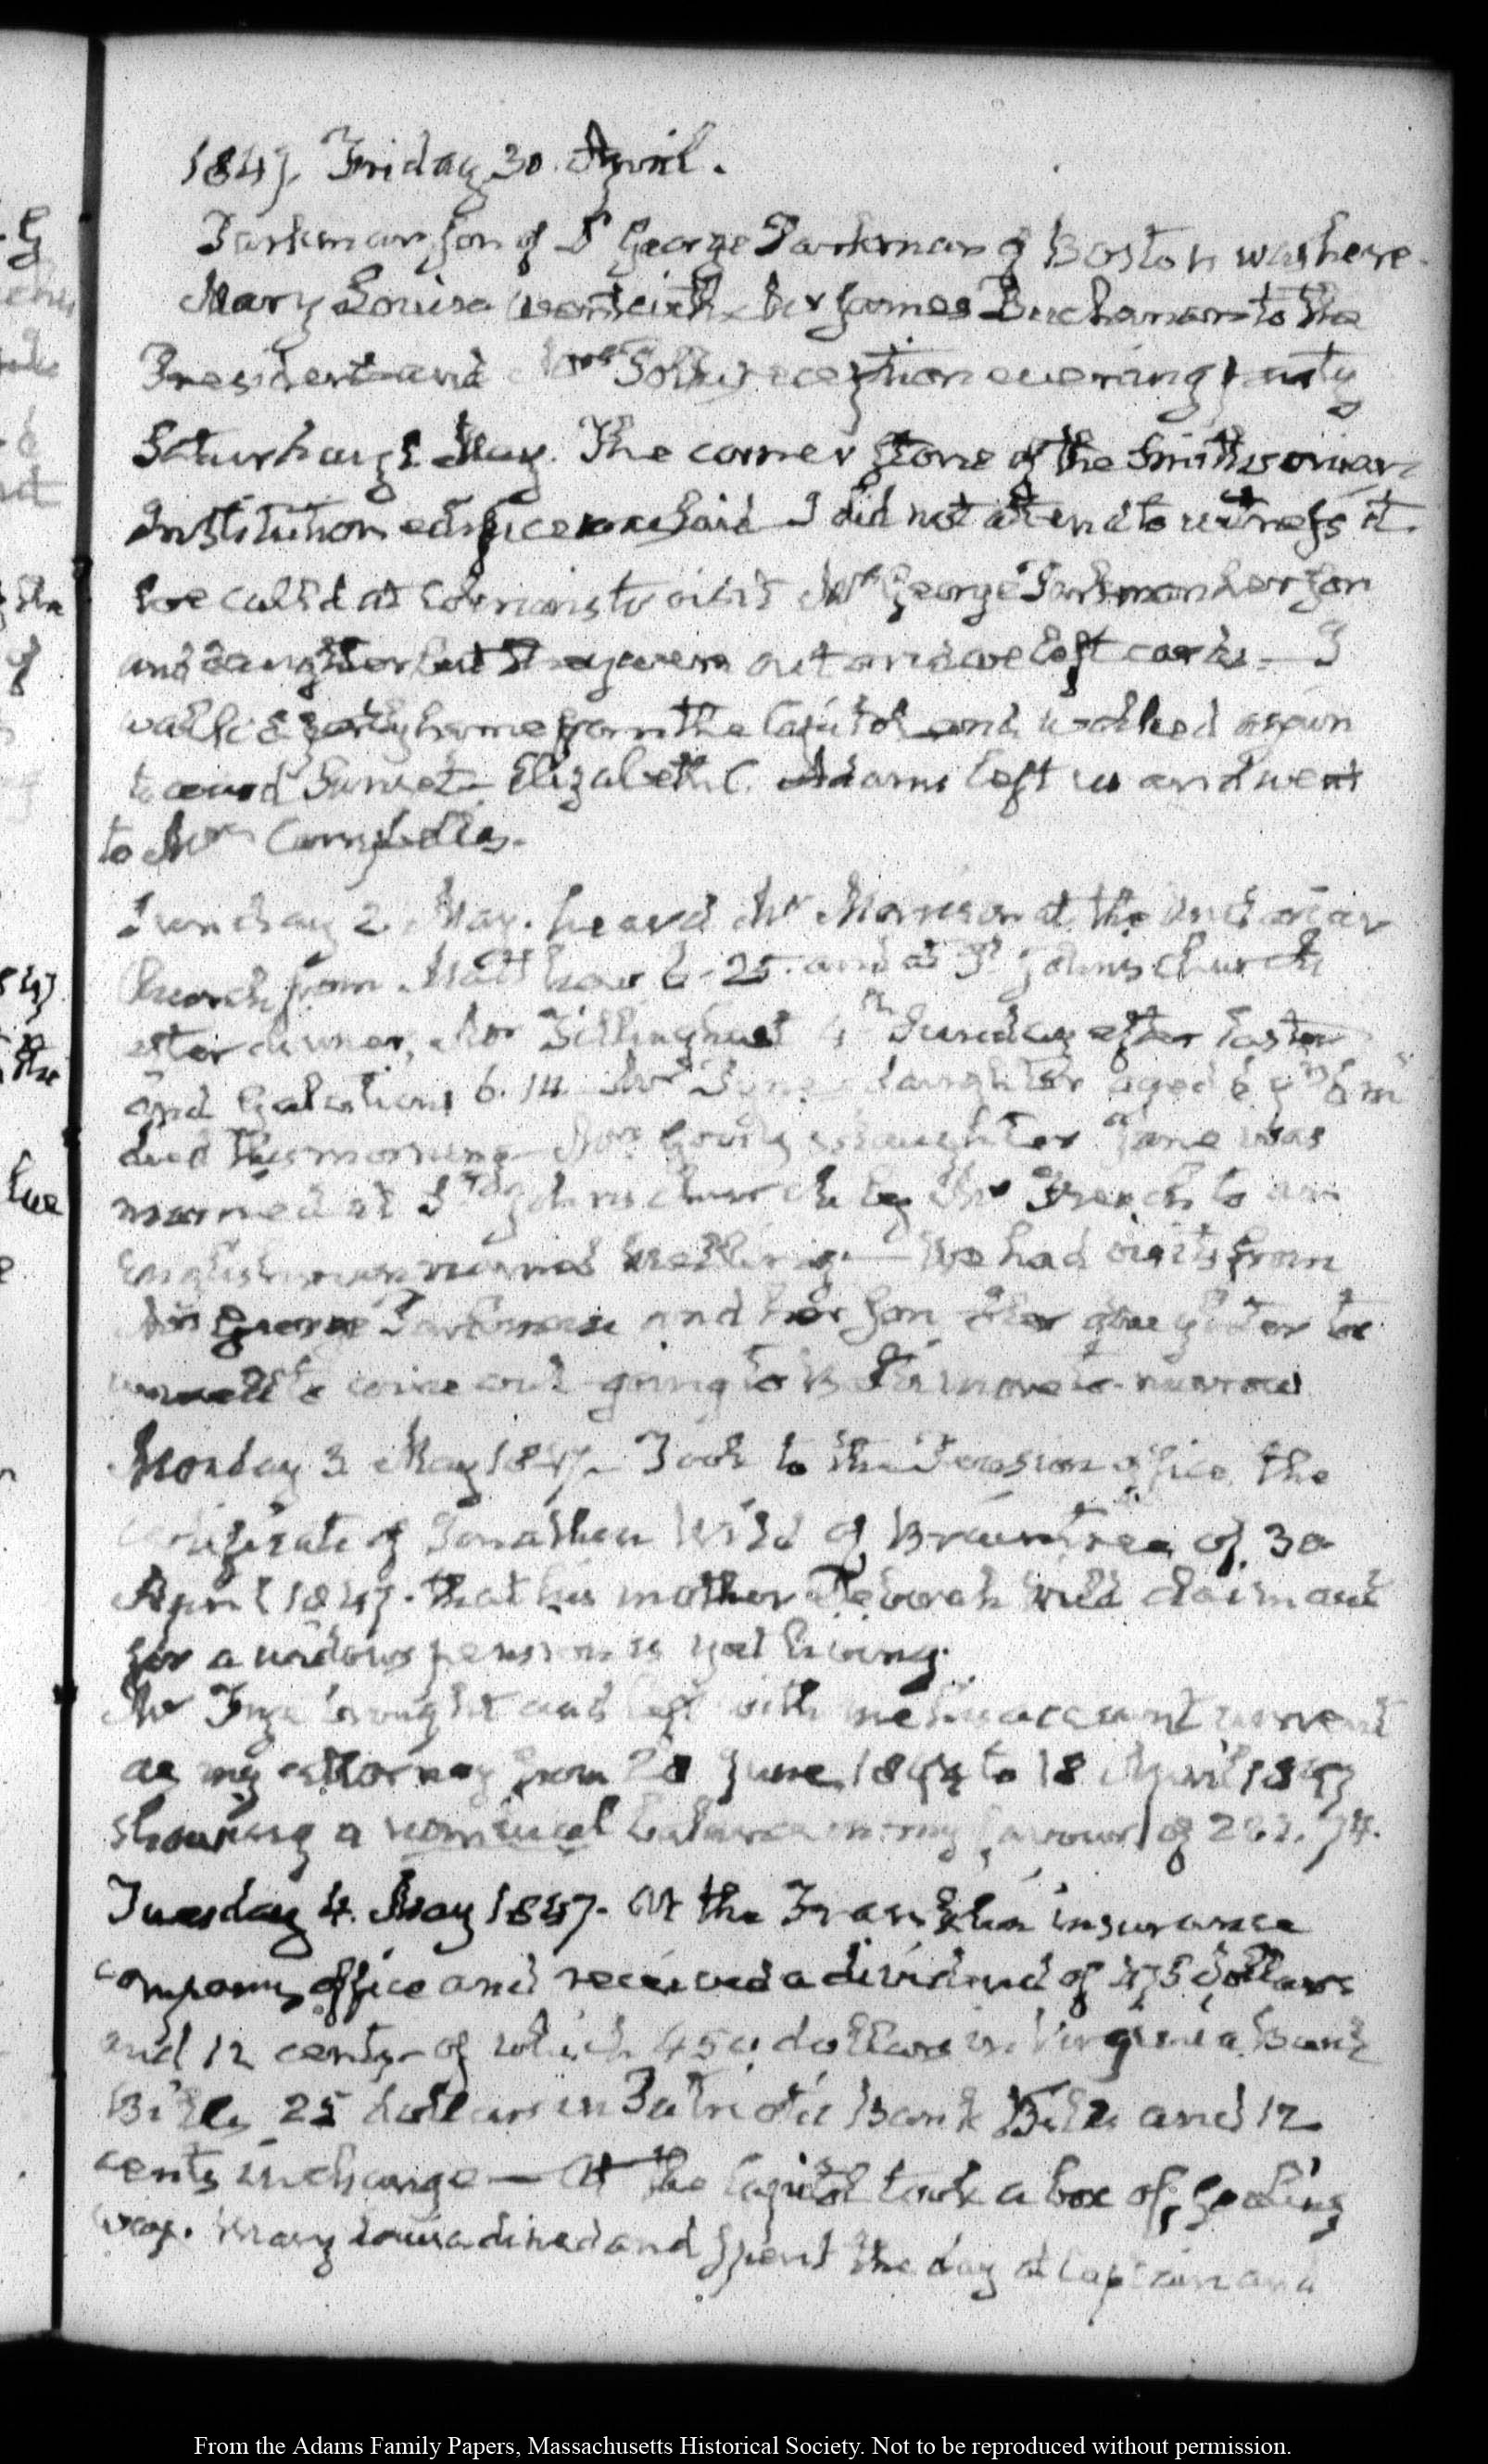 1847. Friday 30. April.
Parkman son of Dr George Parkman of Boston was here.
Mary Louisa went with Mr James Buchanan to the
President and Mrs Polk's reception evening party
Saturday 1. May. The corner stone of the Smithsonian
Institution edifice was laid I did not attend to witness it.
We called at Coleman's to visit Mrs George Parkman her son
and daughter but they were out and we left cards — I
walked partly home from the Capitol and walked again
toward Sunset — Elizabeth C. Adams left us and went
to Mrs Campbell's.
Sunday 2. May. heard Mr Morrison at the Unitarian
Church from Matthew 6-25. and at St John's church
after dinner, Mr Tillinghast 4th Sunday after Easter
and Galatians 6. 14 Mr daughter aged 6 y 6 m
died this morning — Mrs daughter Jane was
married at St John's church by Mr French to an
Englishman named — We had visits from
Mrs George Parkman and her son Her daughter too
unwell to come out going to Baltimore to-morrow
Monday 3. May 1847. Took to the Pension office, the
certificate of Jonathan Wild of Braintree of 30
April 1847. that his mother Deborah Wild claimant
for a widows pension is yet living.
Mr brought and left with me his account current
as my attorney from 20 June 1844 to 18 April 1847
showing a nominal balance in my favour of 222. 74.
Tuesday 4. May 1847. At the Franklin insurance
company office and received a dividend of 475 dollars
and 12 cents — of which 450 dollars in Virginia Bank
Bills, 25 dollars in Patriotic Bank Bills and 12
cents in change — At the Capitol took a box of sealing
wax. Mary Louisa dined and spent the day at Captain and
From the Adams Family Papers, Massachusetts Historical Society. Not to be reproduced without permission.